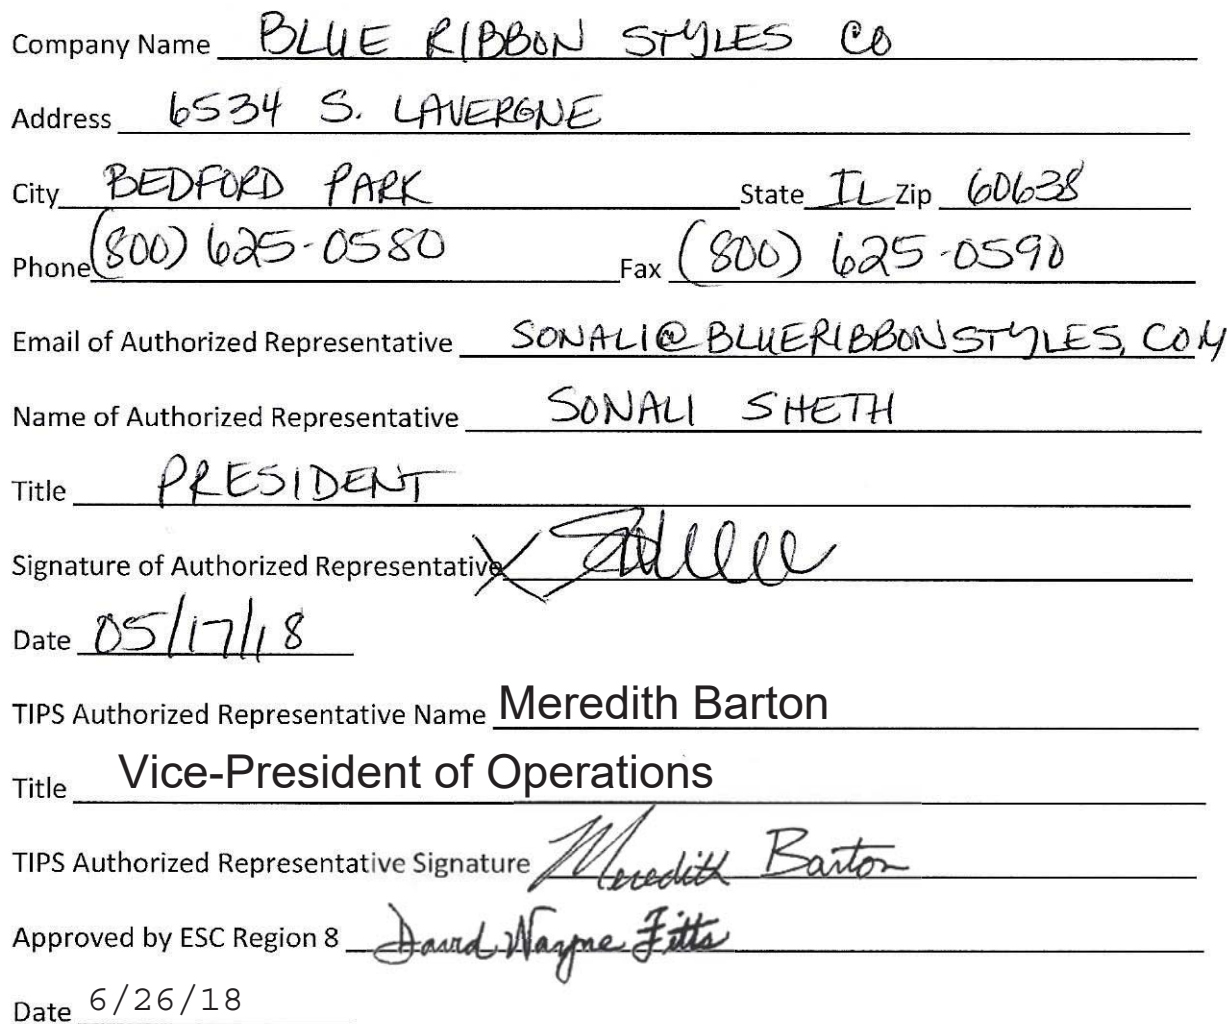 Company Name BLUE RIBBON STYLES CO
Address 6534 S. LAVERGNE
City BEDFORD PARK State IL Zip 60638
Phone (800) 625-0580 Fax (800) 625-0590
Email of Authorized Representative SONALI@BLUERIBBONSTYLES.COM
Name of Authorized Representative SONALI SHETH
Title PRESIDENT
Signature of Authorized Representative X
Date 05/17/18
TIPS Authorized Representative Name Meredith Barton
Title Vice-President of Operations
TIPS Authorized Representative Signature Meredith Barton
Approved by ESC Region 8 David Wayne Fitts
Date 6/26/18